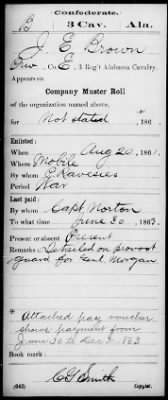 Confederate.
B 3 Cav. Ala.
J. E. Brown
Co. E, 3 Reg't Alabama Cavalry.
Appears on
Company Muster Roll
of the organization named above,
for Not stated, 186
Enlisted:
When Aug 20, 1861.
Where Mobile
By whom G. Ravesies
Period War
Last paid:
By whom Capt Norton
To what time June 30, 1863.
Present or absent Present
Remarks: Detailed on provost
guard for Genl. Morgan
Attached pay voucher
shows payment from
June 30 to Dec 31, 1863
Book mark:
(642) C G Smith
Copyist.